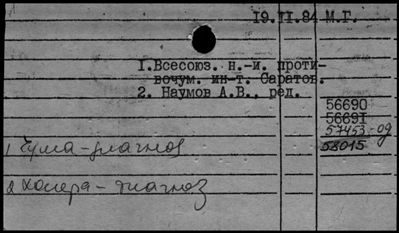 19.II.84 М.Г.
1.Всесоюз. н.-и. проти-
вочум. ин-т. Саратов.
2. Наумов А.В., ред.
56690
56691
57453-09
1 Чума-диагноз
58015
2 Холера-диагноз